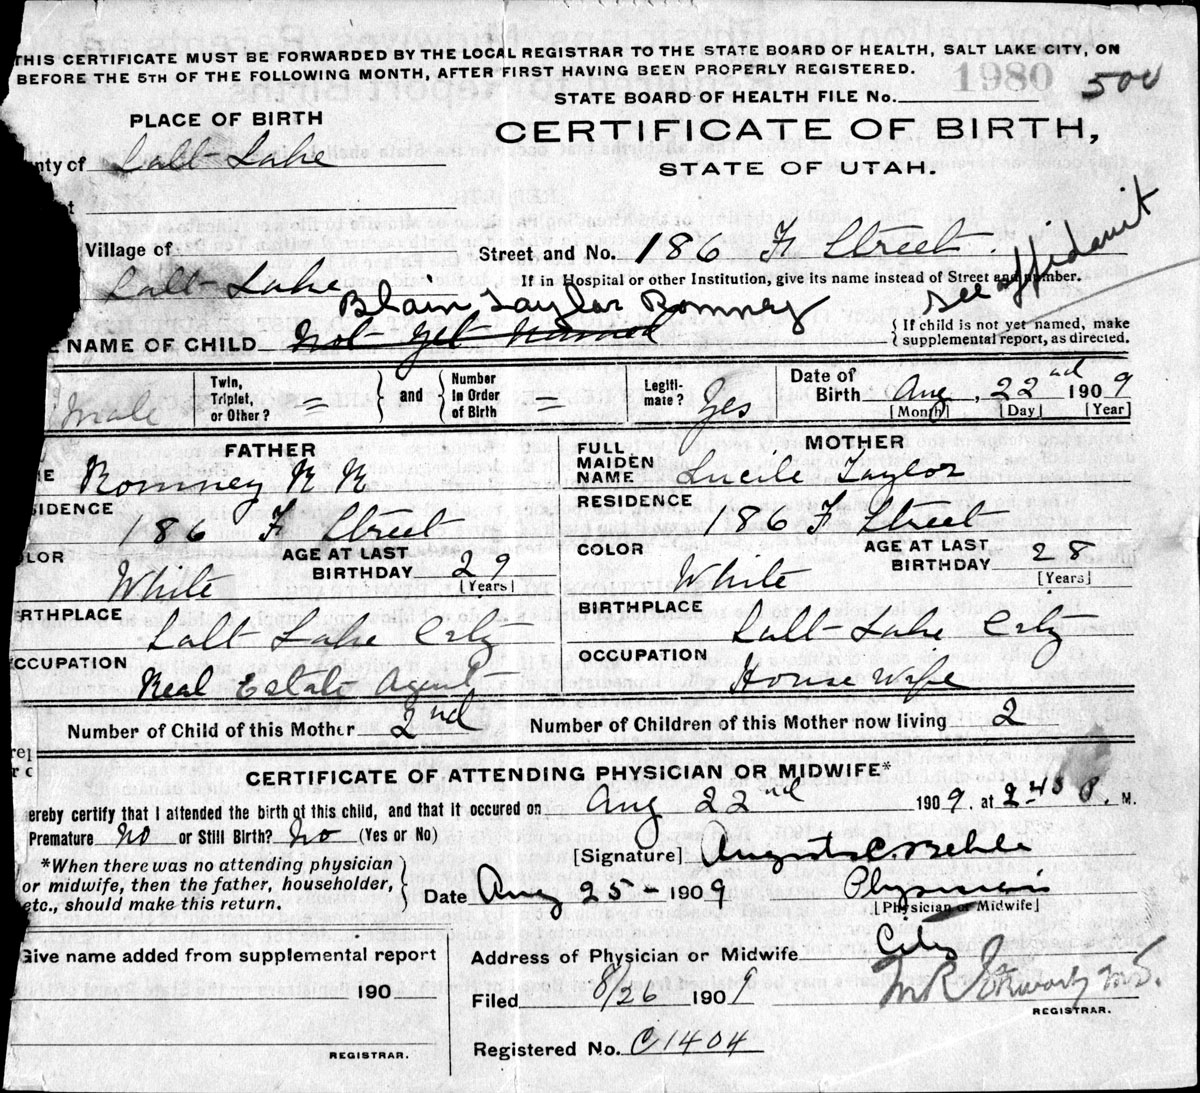 THIS CERTIFICATE MUST BE FORWARDED BY THE LOCAL REGISTRAR TO THE STATE BOARD OF HEALTH, SALT LAKE CITY, ON
BEFORE THE 5TH OF THE FOLLOWING MONTH, AFTER FIRST HAVING BEEN PROPERLY REGISTERED.
1980
500
STATE BOARD OF HEALTH FILE No.
PLACE OF BIRTH
CERTIFICATE OF BIRTH,
STATE OF UTAH.
nty of Salt Lake
t
Village of
Street and No. 186 F Street.
If in Hospital or other Institution, give its name instead of Street and number.
See affidavit
Salt Lake
Blain Taylor Romney
E NAME OF CHILD Not yet Named
{ If child is not yet named, make supplemental report, as directed.
Male
Twin, Triplet, or Other? =
and
Number in Order of Birth =
Legitimate? Yes
Date of Birth Aug, 22nd 1909
[Month] [Day] [Year]
FATHER
MOTHER
ME Romney
FULL MAIDEN NAME Lucile Taylor
SIDENCE 186 F Street
RESIDENCE 186 F Street
OLOR White
AGE AT LAST BIRTHDAY 29
[Years]
COLOR White
AGE AT LAST BIRTHDAY 28
[Years]
RTHPLACE Salt Lake City
BIRTHPLACE Salt Lake City
OCCUPATION Real Estate Agent
OCCUPATION House Wife
Number of Child of this Mother 2nd
Number of Children of this Mother now living 2
CERTIFICATE OF ATTENDING PHYSICIAN OR MIDWIFE*
ereby certify that I attended the birth of this child, and that it occured on Aug 22nd 1909. at 2.45 P. M.
Premature No or Still Birth? No (Yes or No)
[Signature] August C. Behle
*When there was no attending physician
or midwife, then the father, householder,
etc., should make this return.
Date Aug 25- 1909
Physician
[Physician or Midwife]
Give name added from supplemental report
190
REGISTRAR.
Address of Physician or Midwife City
Filed 8/26 1909
M.D.
REGISTRAR.
Registered No. C1404